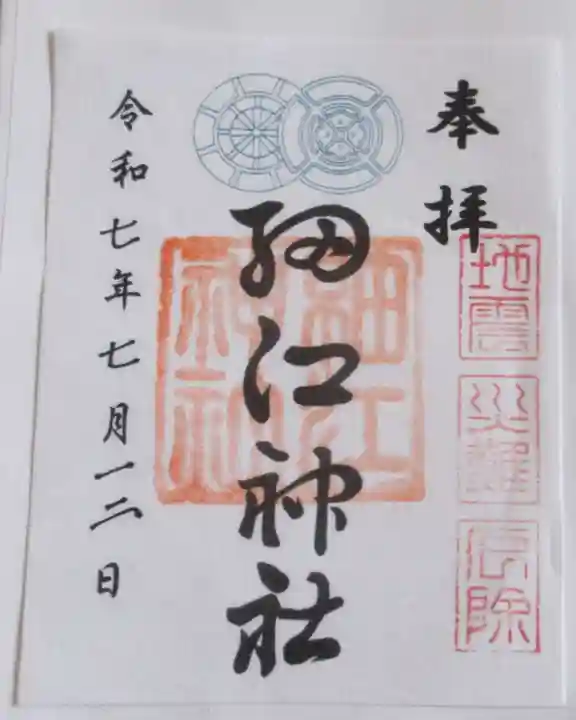 奉拝
地震
災難
厄除
細江神社
細江神社
令和七年七月一二日